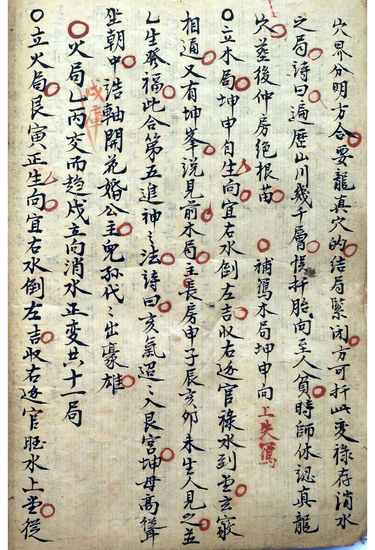 穴界分明方合要龍真穴的結局緊閉方可扞此变祿存消水
之局詩曰遍歷山川幾千層悮扦胎向至人貧時師休認真龍
穴塟後仲房絕根苗 補馬木局坤申向上失寫
立木局坤申自生向宜右水倒左吉収右边官祿水到堂玄竅
相通又有坤峯說見前木局主長房申子辰亥卯未生人見之並
乙生發福此合第五進神之法詩曰亥氣迢々入艮宮坤母高聳
坐朝中誥軸開花婚公主兒孫代々出豪雄
火局乙丙交而趋戌立向消水正变共十一局
戌庫
立火局艮寅正生向宜右水倒左吉収右边官旺水上堂從